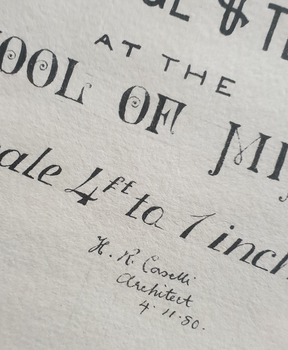 &
AT THE
OOL OF MI
ale 4ft to 1 inch
H. R. Caselli
Architect
4·11·80.